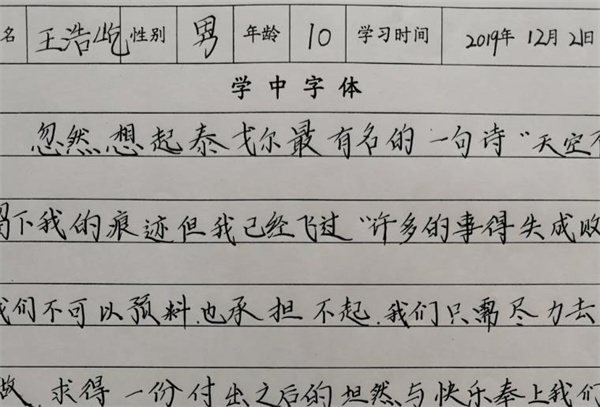 名 王浩屹 性别 男 年龄 10 学习时间 2019年 12月 21日
学中字体
忽然想起泰戈尔最有名的一句诗“天空
下我的痕迹但我已经飞过“许多的事得失成败
我们不可以预料.也承担不起.我们只需尽力去
做 求得一份付出之后的坦然与快乐奉上我们